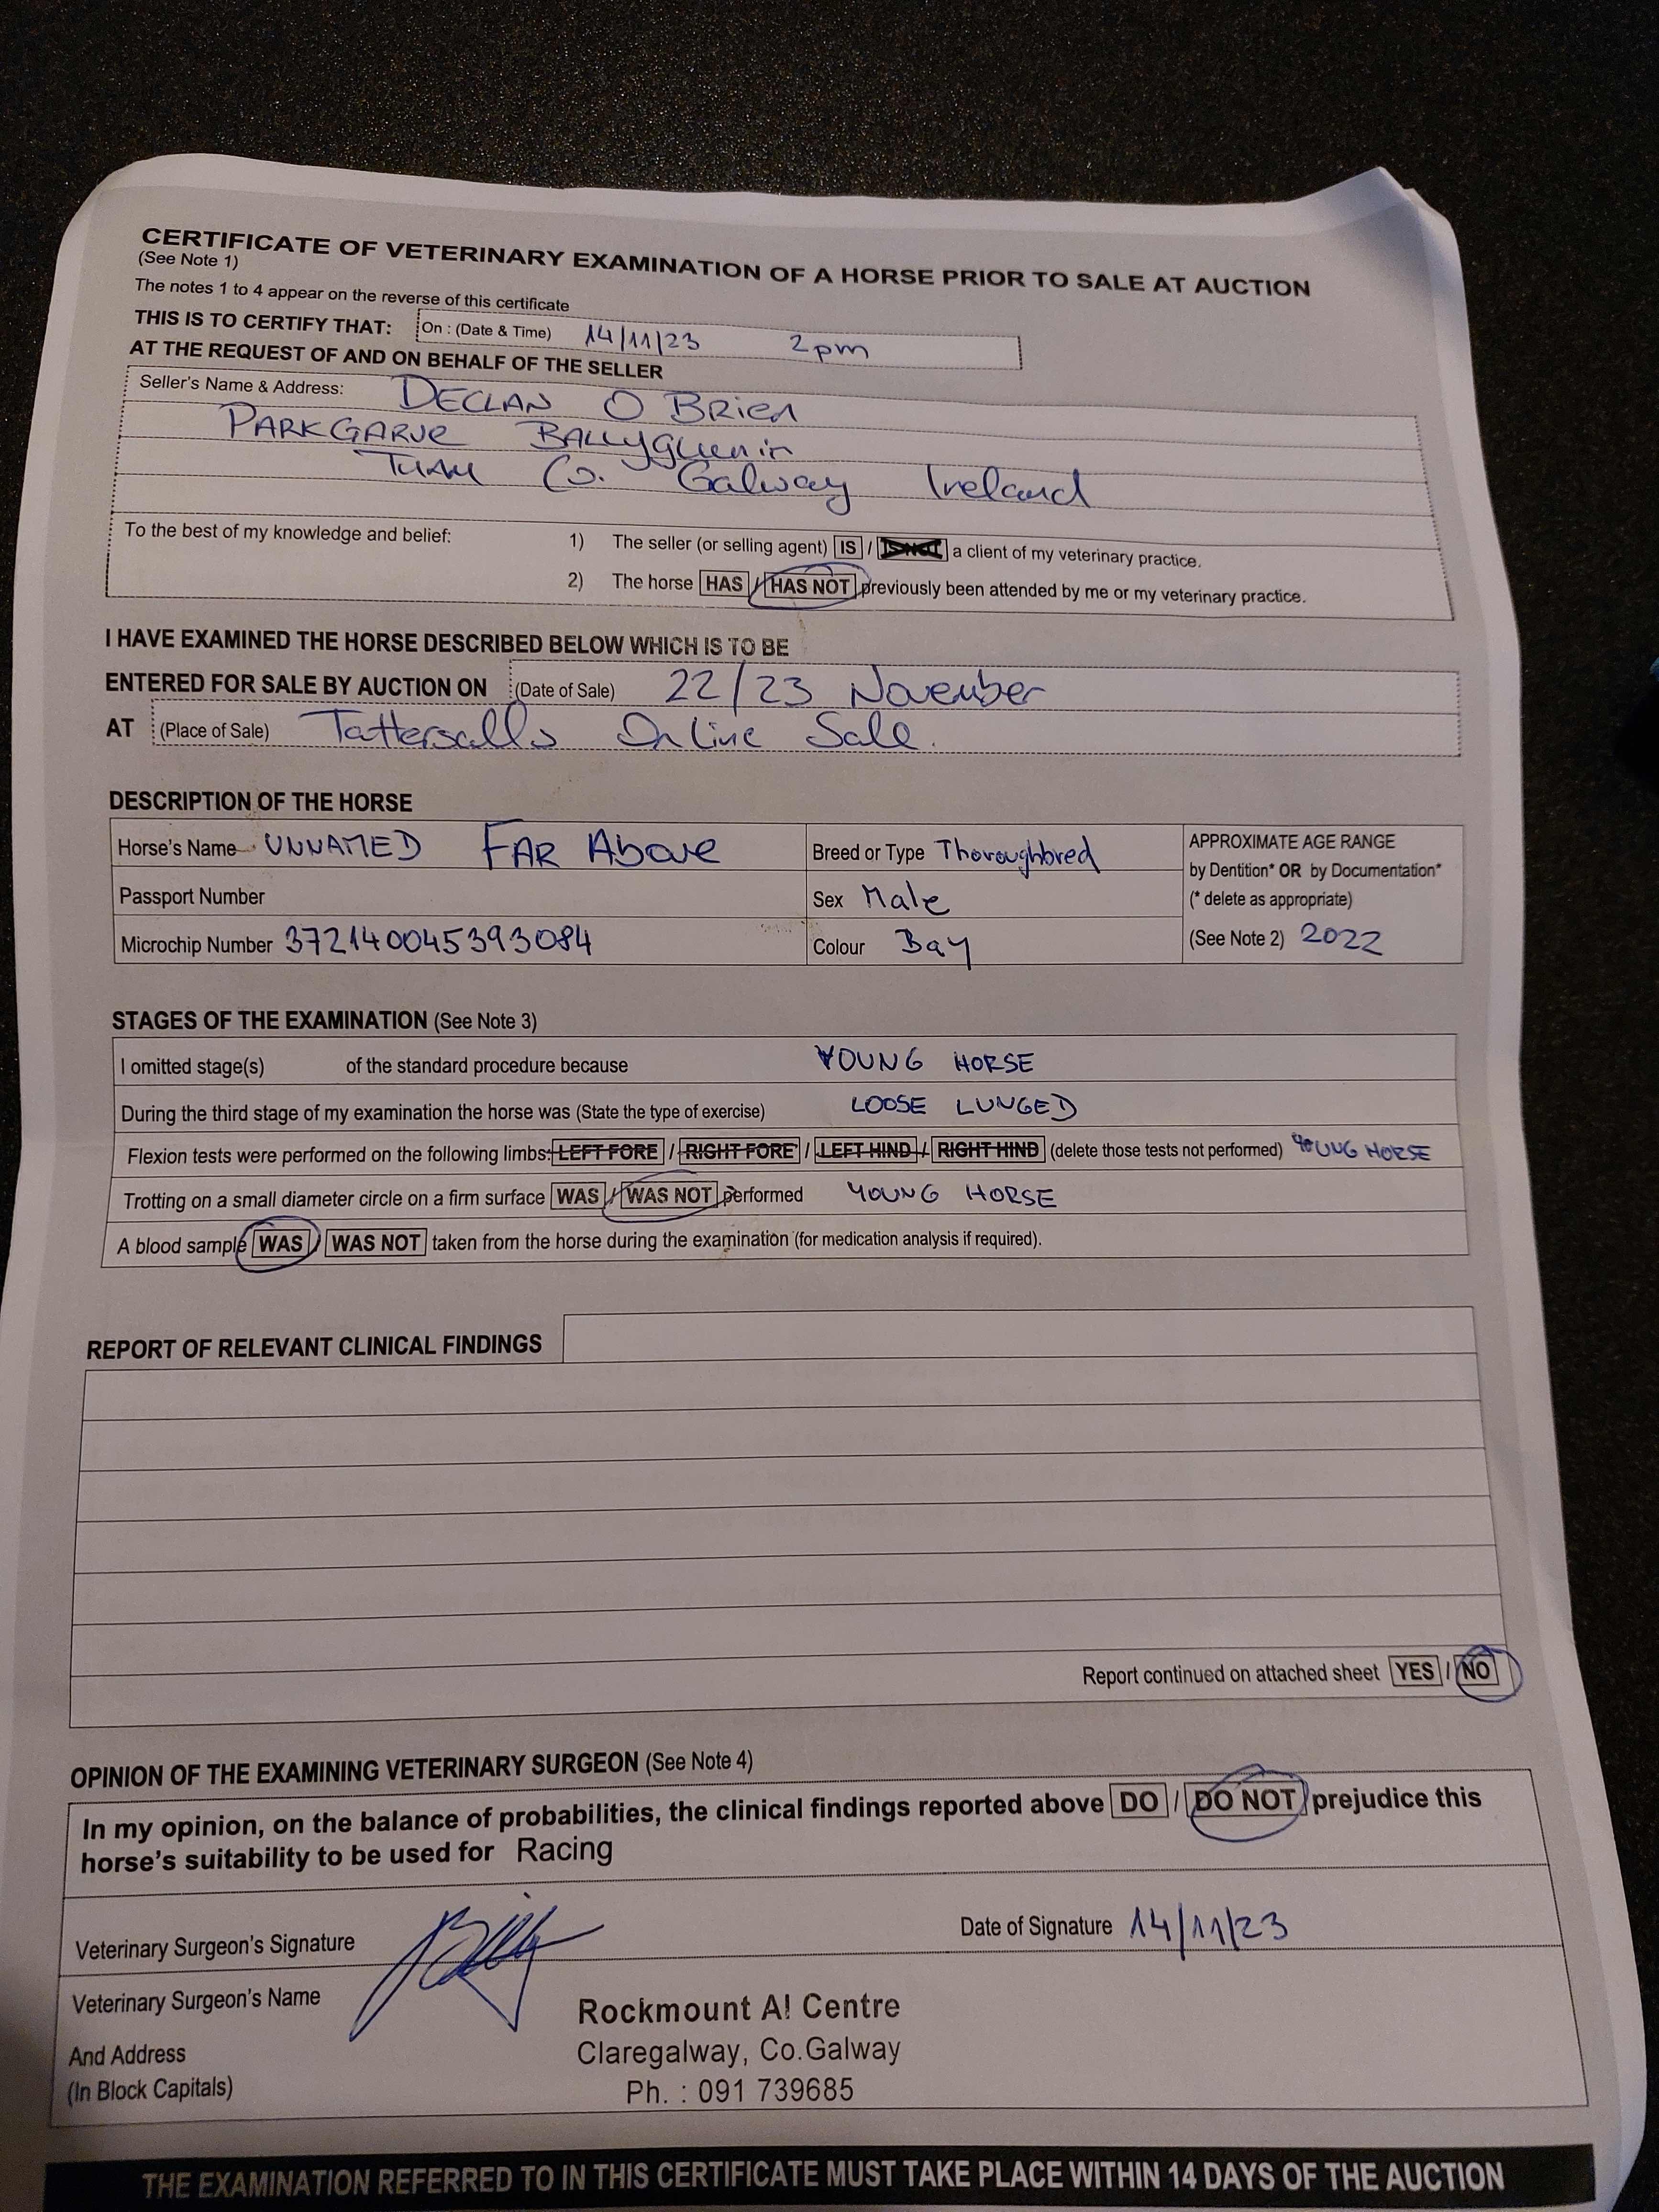 CERTIFICATE OF VETERINARY EXAMINATION OF A HORSE PRIOR TO SALE AT AUCTION
(See Note 1)
The notes 1 to 4 appear on the reverse of this certificate
THIS IS TO CERTIFY THAT: On : (Date & Time) 14/11/23 2pm
AT THE REQUEST OF AND ON BEHALF OF THE SELLER
Seller's Name & Address: DECLAN O BRien
PARKGARVE BALLYGluNin
TUAM Co. Galway Ireland
To the best of my knowledge and belief: 1) The seller (or selling agent) IS / IS NOT a client of my veterinary practice.
2) The horse HAS / HAS NOT previously been attended by me or my veterinary practice.
I HAVE EXAMINED THE HORSE DESCRIBED BELOW WHICH IS TO BE
ENTERED FOR SALE BY AUCTION ON (Date of Sale) 22/23 November
AT (Place of Sale) Tattersalls OnLine Sale.
DESCRIPTION OF THE HORSE
Horse's Name UNNAMED FAR Above Breed or Type Thoroughbred APPROXIMATE AGE RANGE
by Dentition* OR by Documentation*
Passport Number Sex Male (* delete as appropriate)
Microchip Number 372140045393084 Colour Bay (See Note 2) 2022
STAGES OF THE EXAMINATION (See Note 3)
I omitted stage(s) of the standard procedure because YOUNG HORSE
During the third stage of my examination the horse was (State the type of exercise) LOOSE LUNGED
Flexion tests were performed on the following limbs: LEFT FORE / RIGHT FORE / LEFT HIND / RIGHT HIND (delete those tests not performed) YOUNG HORSE
Trotting on a small diameter circle on a firm surface WAS / WAS NOT performed YOUNG HORSE
A blood sample WAS / WAS NOT taken from the horse during the examination (for medication analysis if required).
REPORT OF RELEVANT CLINICAL FINDINGS
Report continued on attached sheet YES / NO
OPINION OF THE EXAMINING VETERINARY SURGEON (See Note 4)
In my opinion, on the balance of probabilities, the clinical findings reported above DO / DO NOT prejudice this
horse's suitability to be used for Racing
Veterinary Surgeon's Signature Date of Signature 14/11/23
Veterinary Surgeon's Name Rockmount A! Centre
And Address Claregalway, Co.Galway
(In Block Capitals) Ph. : 091 739685
THE EXAMINATION REFERRED TO IN THIS CERTIFICATE MUST TAKE PLACE WITHIN 14 DAYS OF THE AUCTION